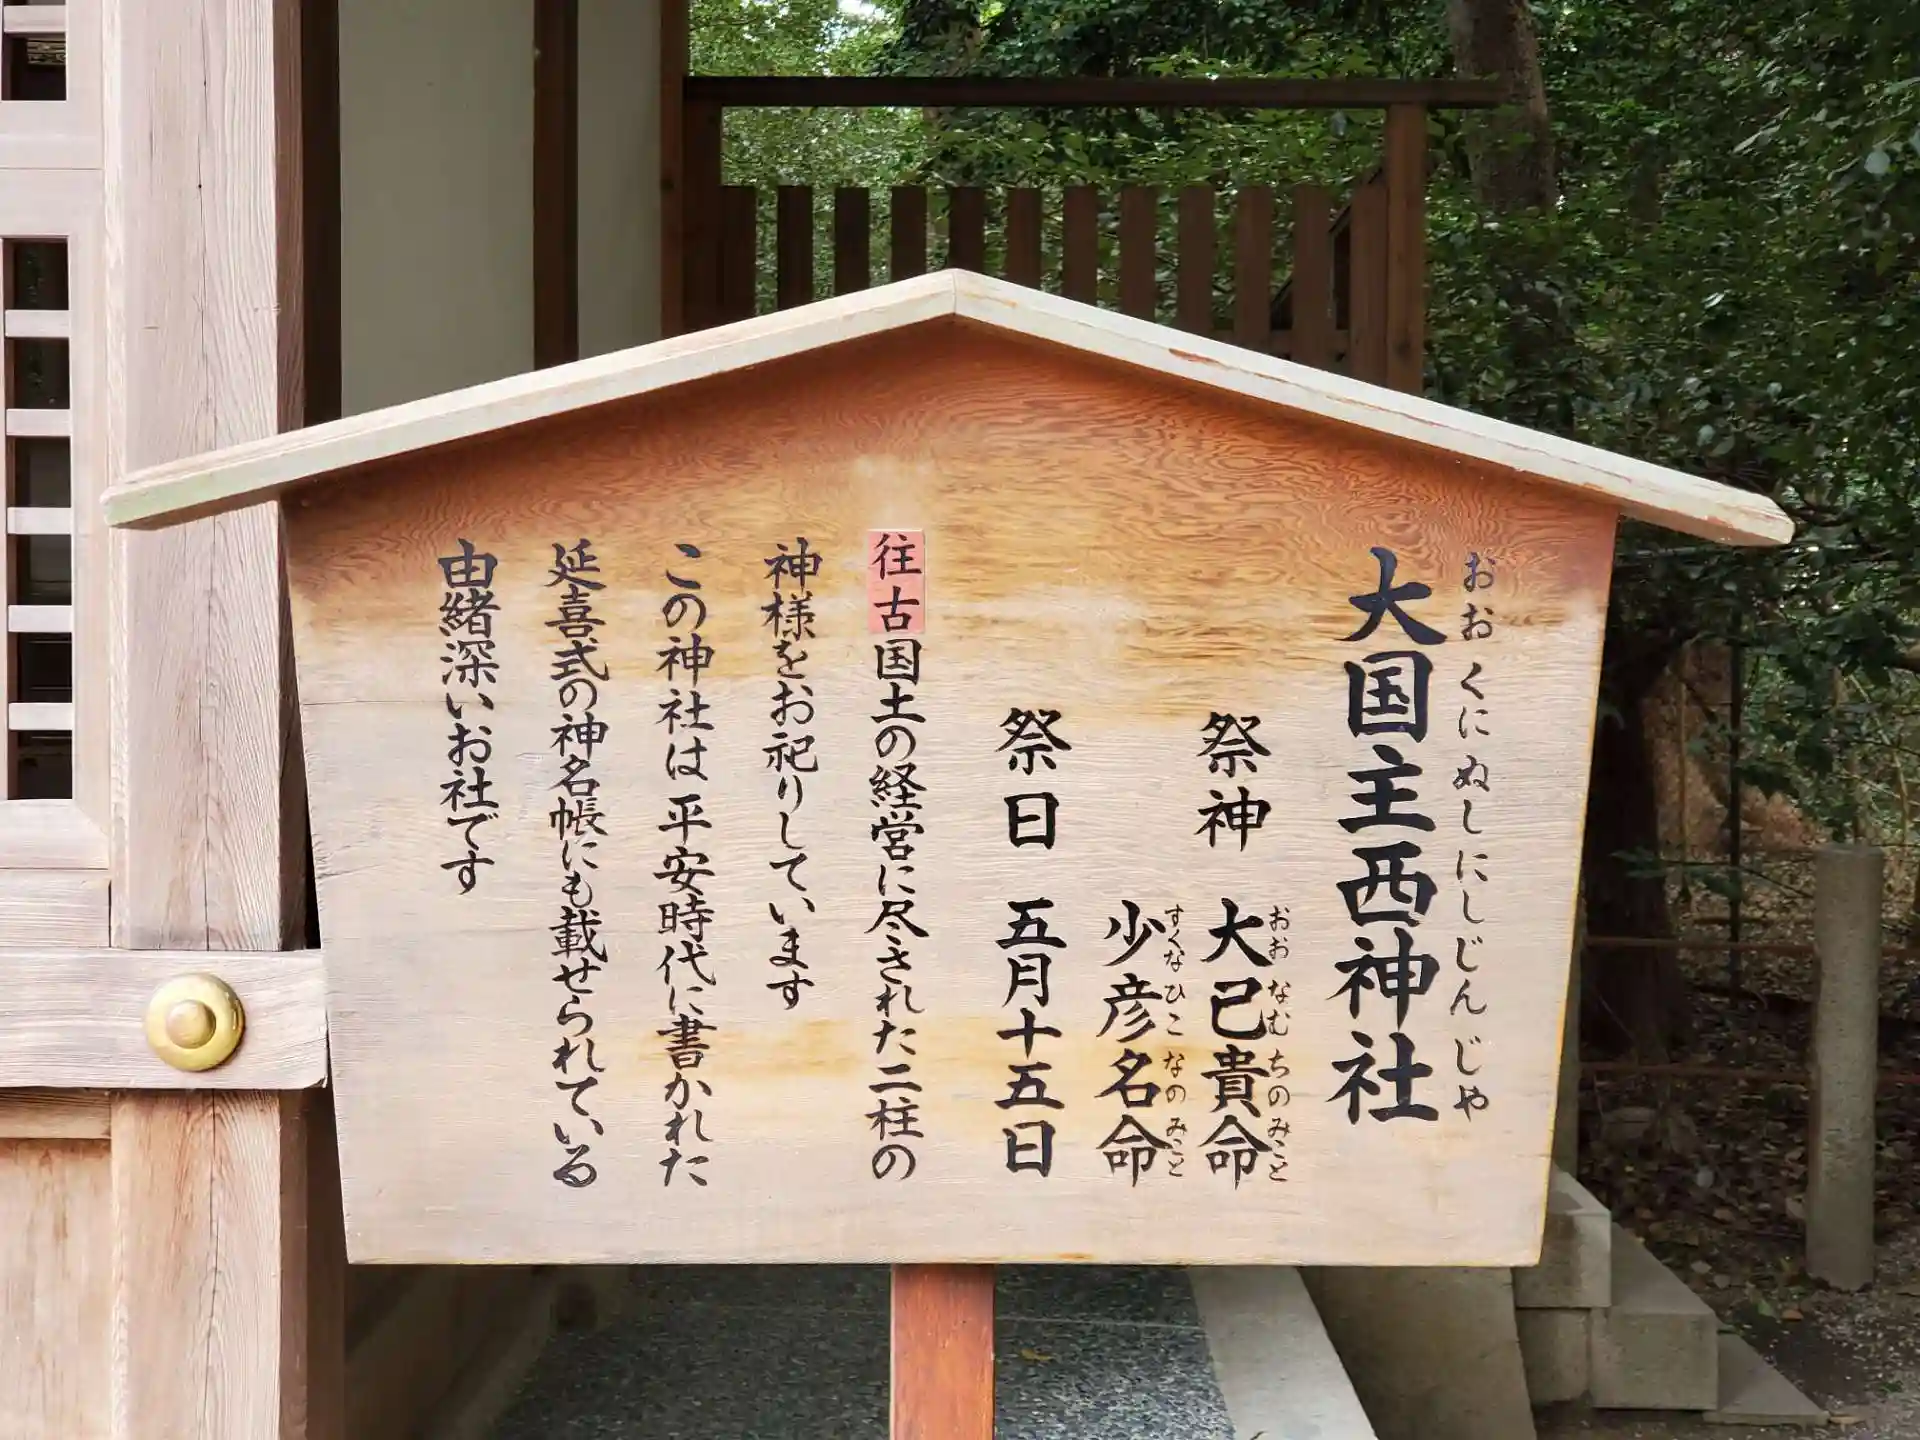 大国主西神社
おおくにぬしにしじんじゃ
祭神 大己貴命
おおなむちのみこと
少彦名命
すくなひこなのみこと
祭日 五月十五日
往古国土の経営に尽された二柱の
神様をお祀りしています
この神社は平安時代に書かれた
延喜式の神名帳にも載せられている
由緒深いお社です